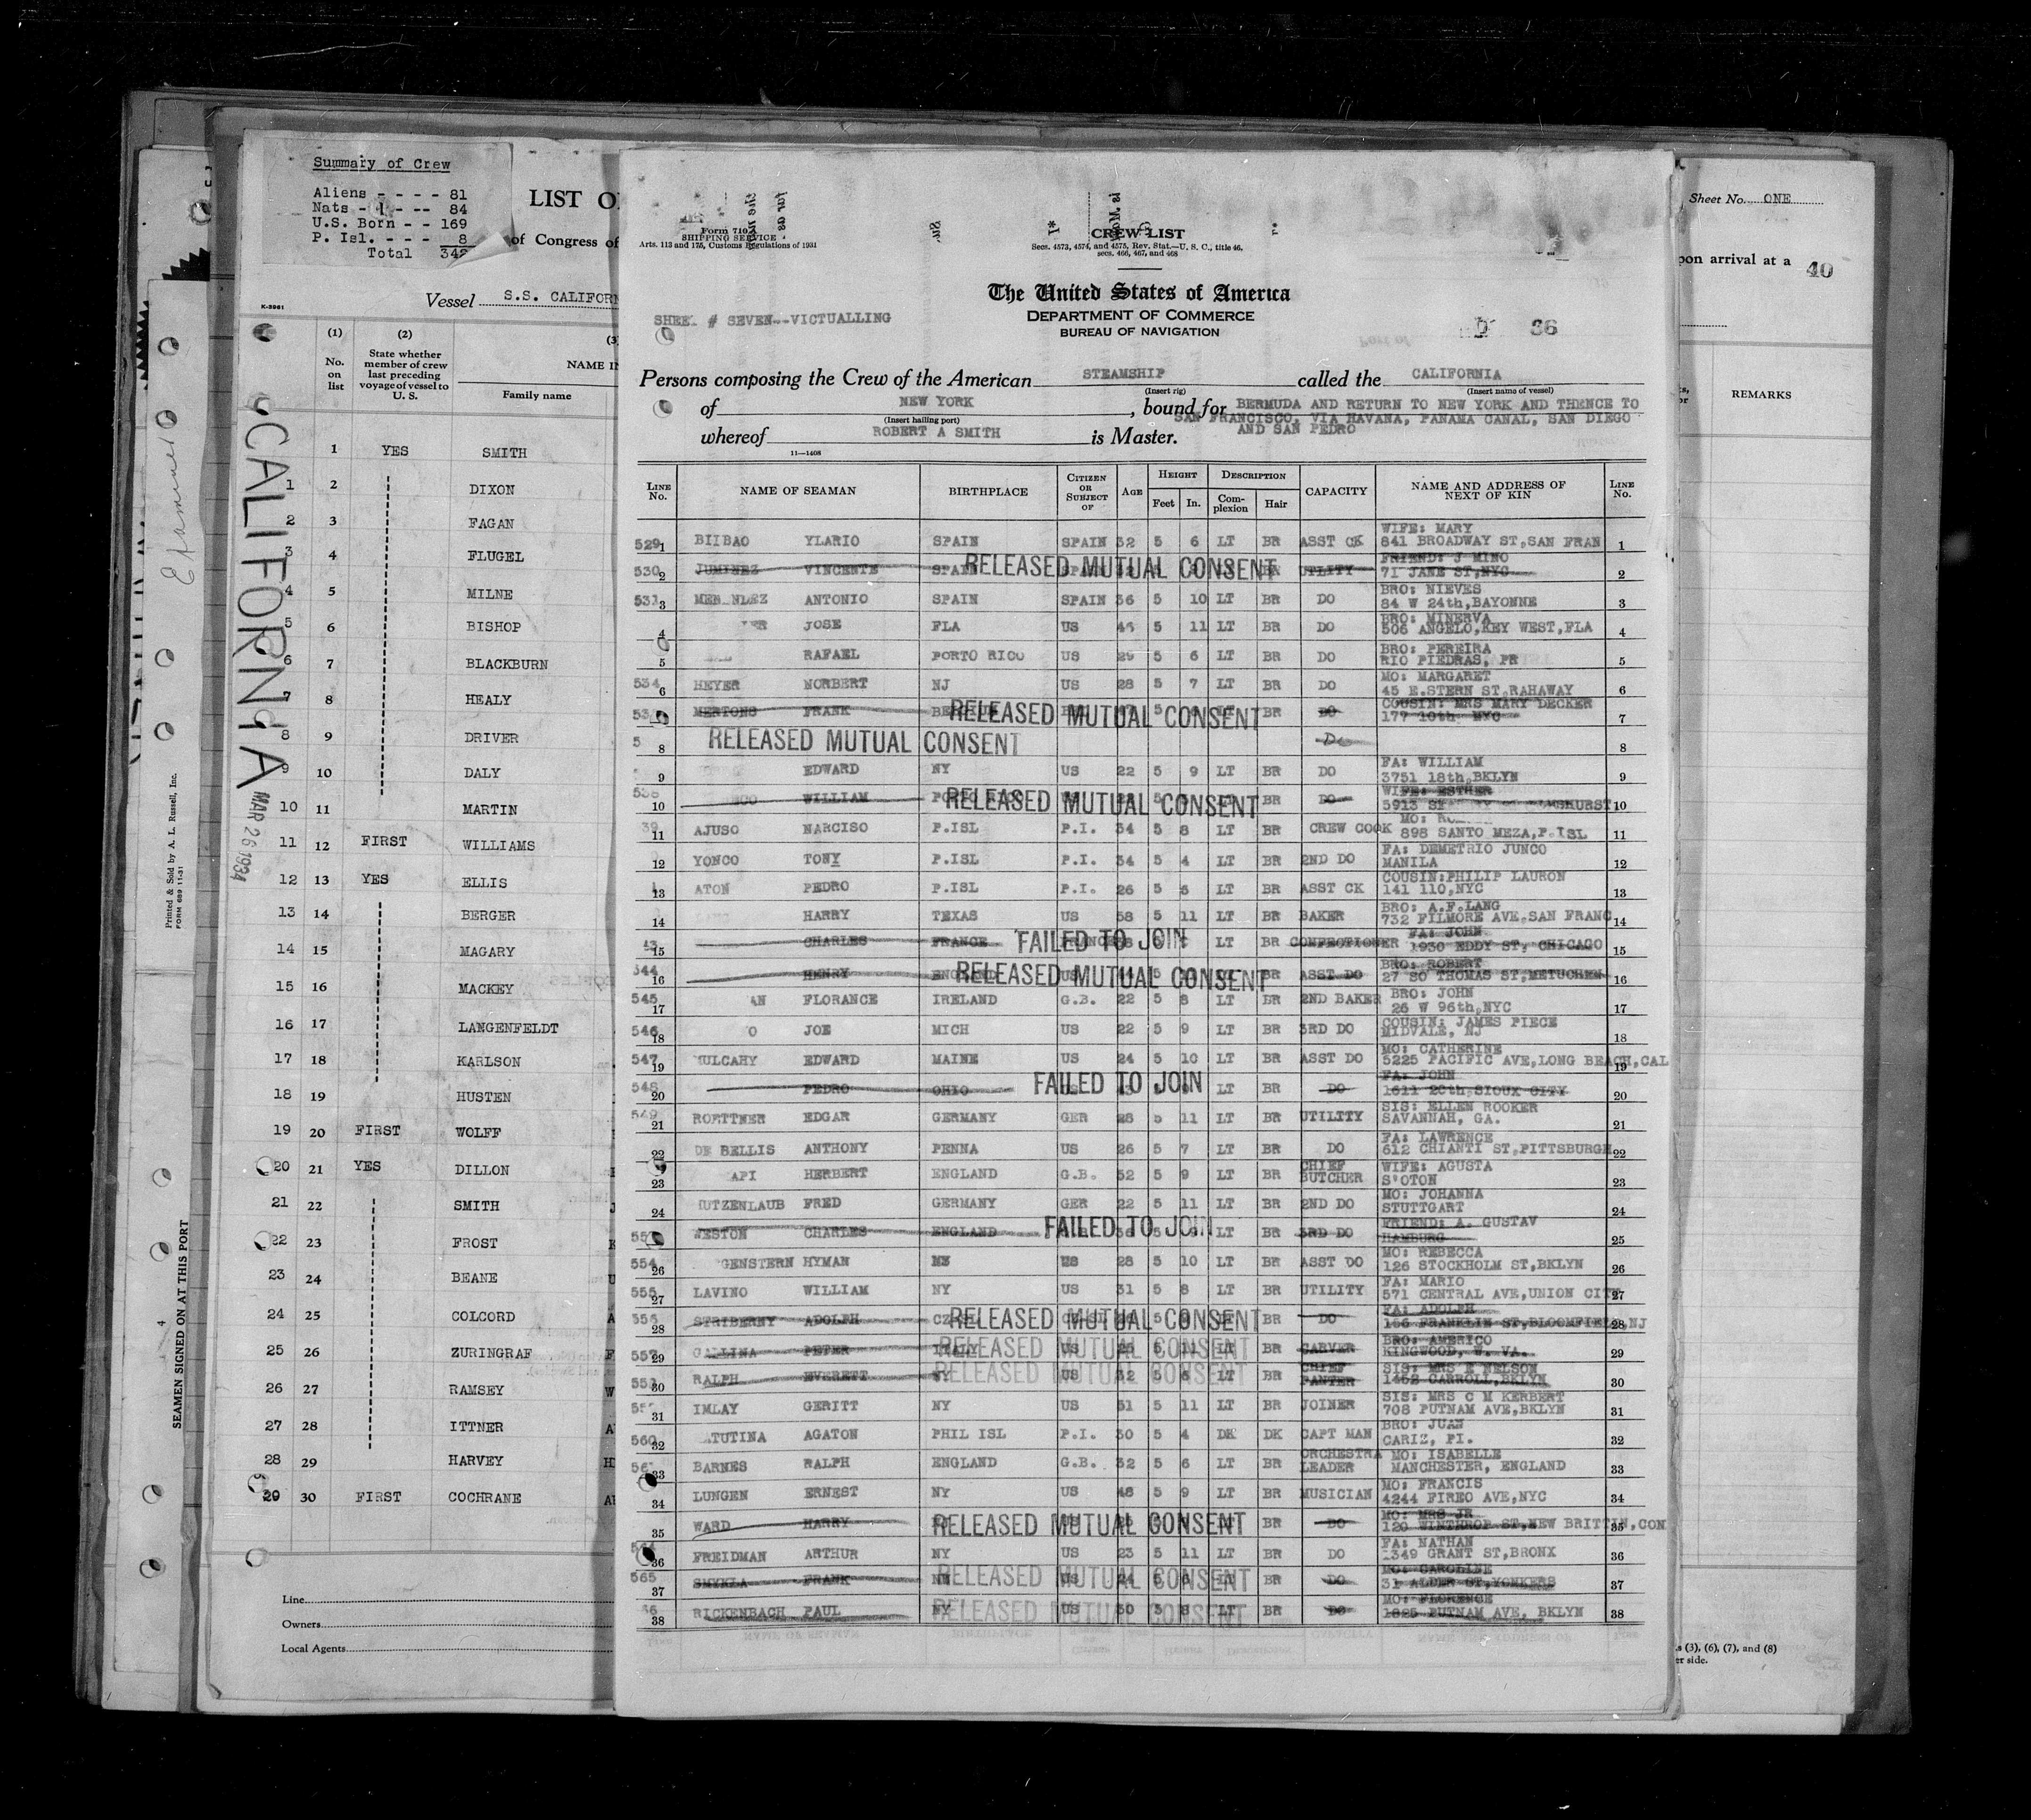 Summary of Crew
Aliens - - - - 81
Nats - - -- 84
U.S. Born - - 169
P. Isl. - - - 8
Total 342
LIST O
of Congress of
K-3961
Vessel S.S. CALIFORN
(1) (2) (3
No. on list
State whether member of crew last preceding voyage of vessel to U. S.
NAME IN
Family name
CALIFORNIA
MAR 26 1934
Examined
Printed & Sold by A. L. Russell, Inc.
FORM 689 11-31
SEAMEN SIGNED ON AT THIS PORT
4
1 YES SMITH
1 2 DIXON
2 3 FAGAN
3 4 FLUGEL
4 5 MILNE
5 6 BISHOP
6 7 BLACKBURN
7 8 HEALY
8 9 DRIVER
9 10 DALY
10 11 MARTIN
11 12 FIRST WILLIAMS
12 13 YES ELLIS
13 14 BERGER
14 15 MAGARY
15 16 MACKEY
16 17 LANGENFELDT
17 18 KARLSON
18 19 HUSTEN
19 20 FIRST WOLFF
20 21 YES DILLON
21 22 SMITH
22 23 FROST
23 24 BEANE
24 25 COLCORD
25 26 ZURINGRAF
26 27 RAMSEY
27 28 ITTNER
28 29 HARVEY
29 30 FIRST COCHRANE
Line
Owners
Local Agents
Form 710
SHIPPING SERVICE
Arts. 113 and 175, Customs Regulations of 1931
CREW LIST
Secs. 4573, 4574, and 4575, Rev. Stat.—U. S. C., title 46,
secs. 466, 467, and 468
The United States of America
DEPARTMENT OF COMMERCE
BUREAU OF NAVIGATION
SHEET # SEVEN--VICTUALLING
36
Persons composing the Crew of the American STEAMSHIP called the CALIFORNIA
(Insert rig) (Insert name of vessel)
of NEW YORK, bound for BERMUDA AND RETURN TO NEW YORK AND THENCE TO
(Insert hailing port) SAN FRANCISCO, VIA HAVANA, PANAMA CANAL, SAN DIEGO
whereof ROBERT A SMITH is Master. AND SAN PEDRO
11—1408
LINE No. NAME OF SEAMAN BIRTHPLACE CITIZEN OR SUBJECT OF AGE HEIGHT DESCRIPTION CAPACITY NAME AND ADDRESS OF NEXT OF KIN LINE No.
Feet In. Complexion Hair
WIFE: MARY
529 1 BIIBAO YLARIO SPAIN SPAIN 32 5 6 LT BR ASST CK 841 BROADWAY ST,SAN FRAN 1
FRIEND: J MINO
530 2 JUMINEZ VINCENTE SPAIN RELEASED MUTUAL CONSENT BR UTLITY 71 JANE ST,NYC 2
BRO: NIEVES
531 3 ANTONIO SPAIN SPAIN 36 5 10 LT BR DO 84 W 24th,BAYONNE 3
BRO: MINERVA
4 JOSE FLA US 5 11 LT BR DO 506 ANGELO,KEY WEST,FLA 4
BRO: PEREIRA
5 RAFAEL PORTO RICO US 29 5 6 LT BR DO RIO PIEDRAS, PR 5
MO: MARGARET
534 6 HEYER NORBERT NJ US 28 5 7 LT BR DO 45 E.STERN ST,RAHAWAY 6
COUSIN: MRS MARY DECKER
7 MERTONS FRANK RELEASED MUTUAL CONSENT BR DO 177 10th NYC 7
8 RELEASED MUTUAL CONSENT Do 8
FA: WILLIAM
9 EDWARD NY US 22 5 9 LT BR DO 3751 18th,BKLYN 9
WIFE: ESTHER
10 WILLIAM RELEASED MUTUAL CONSENT BR DO 5913 10
MO:
11 AJUSO NARCISO P.ISL P.I. 34 5 8 LT BR CREW COOK 898 SANTO MEZA,P.ISL 11
FA: DEMETRIO JUNCO
12 YONCO TONY P.ISL P.I. 34 5 4 LT BR 2ND DO MANILA 12
COUSIN:PHILIP LAURON
13 ATON PEDRO P.ISL P.I. 26 5 6 LT BR ASST CK 141 110,NYC 13
BRO: A.F.LANG
14 HARRY TEXAS US 58 5 11 LT BR BAKER 732 FILMORE AVE,SAN FRANC 14
FA: JOHN
15 CHARLES FRANCE FAILED TO JOIN LT BR CONFECTIONER 1930 EDDY ST, CHICAGO 15
BRO: ROBERT
544 16 HENRY ENGLAND RELEASED MUTUAL CONSENT BR ASST DO 27 SO THOMAS ST,METUCHEN 16
BRO: JOHN
545 17 FLORANCE IRELAND G.B. 22 5 8 LT BR 2ND BAKER 26 W 96th,NYC 17
COUSIN: JAMES PIECE
546 18 JOE MICH US 22 5 9 LT BR 3RD DO MIDVALE, NJ 18
MO: CATHERINE
547 19 MULCAHY EDWARD MAINE US 24 5 10 LT BR ASST DO 5225 PACIFIC AVE,LONG BEACH,CAL 19
FA: JOHN
548 20 PEDRO OHIO FAILED TO JOIN LT BR DO 1611 20th,SIOUX CITY 20
SIS: ELLEN ROOKER
549 21 ROETTNER EDGAR GERMANY GER 28 5 11 LT BR UTILITY SAVANNAH, GA. 21
FA: LAWRENCE
22 DE BELLIS ANTHONY PENNA US 26 5 7 LT BR DO 612 CHIANTI ST,PITTSBURGH 22
CHIEF WIFE: AGUSTA
23 HERBERT ENGLAND G.B. 52 5 9 LT BR BUTCHER S'OTON 23
MO: JOHANNA
24 UTZENLAUB FRED GERMANY GER 22 5 11 LT BR 2ND DO STUTTGART 24
FRIEND: A. GUSTAV
25 WESTON CHARLES ENGLAND FAILED TO JOIN LT BR 3RD DO HAMBURG 25
MO: REBECCA
554 26 GENSTERN HYMAN US 28 5 10 LT BR ASST DO 126 STOCKHOLM ST,BKLYN 26
FA: MARIO
555 27 LAVINO WILLIAM NY US 31 5 8 LT BR UTILITY 571 CENTRAL AVE,UNION CITY 27
FA: ADOLPH
556 28 STRIBERNY ADOLPH RELEASED MUTUAL CONSENT BR DO 166 FRANKLIN ST,BLOOMFIELD,NJ 28
BRO: AMERICO
557 29 GALLINA PETER ITALY RELEASED MUTUAL CONSENT US 25 5 11 LT BR CARVER KINGWOOD, W. VA. 29
CHIEF SIS: MRS E NELSON
30 RALPH EVERETT NY RELEASED MUTUAL CONSENT US 32 5 6 LT BR PANTER 1452 CARROLL,BKLYN 30
SIS: MRS C M KERBERT
31 IMLAY GERITT NY US 51 5 11 LT BR JOINER 708 PUTNAM AVE,BKLYN 31
BRO: JUAN
560 32 TUTINA AGATON PHIL ISL P.I. 30 5 4 DK DK CAPT MAN CARIZ, PI. 32
ORCHESTRA MO: ISABELLE
33 BARNES RALPH ENGLAND G.B. 32 5 6 LT BR LEADER MANCHESTER, ENGLAND 33
MO: FRANCIS
34 LUNGEN ERNEST NY US 48 5 9 LT BR MUSICIAN 4244 FIREO AVE,NYC 34
MO: MRS JR
35 WARD HARRY RELEASED MUTUAL CONSENT BR DO 120 WINTHROP ST,NEW BRITTIN,CON 35
FA: NATHAN
36 FREIDMAN ARTHUR NY US 23 5 11 LT BR DO 1349 GRANT ST,BRONX 36
MO: CAROLINE
565 37 SMYKLA FRANK RELEASED MUTUAL CONSENT US LT BR DO 31 ALDER ST,YONKERS 37
MO: FLORENCE
38 RICKENBACH PAUL NY RELEASED MUTUAL CONSENT US 30 5 8 LT BR DO 1825 PUTNAM AVE, BKLYN 38
Sheet No. ONE
pon arrival at a 40
REMARKS
s (3), (6), (7), and (8)
er side.